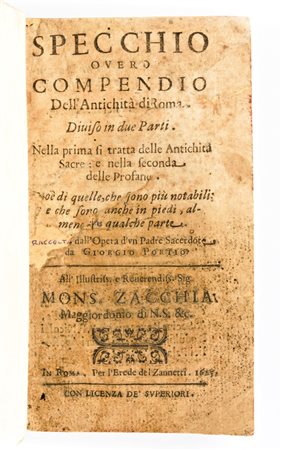 SPECCHIO
OVERO
COMPENDIO
Dell'Antichità di Roma.
Diviso in due Parti.
Nella prima si tratta delle Antichità
Sacre: e nella seconda
delle Profane.
Cioè di quelle, che sono più notabili;
e che sono anche in piedi, al-
meno qualche parte
RACCOLTO dall'Opera d'vn Padre Sacerdote
da GIORGIO PORTIO
All' Illustriss. e Reuerendiss. Sig.
MONS. ZACCHIA
Maggiordomo di N.S. &c.
IN ROMA, Per l'Erede del Zannetti. 1625.
CON LICENZA DE' SVPERIORI.